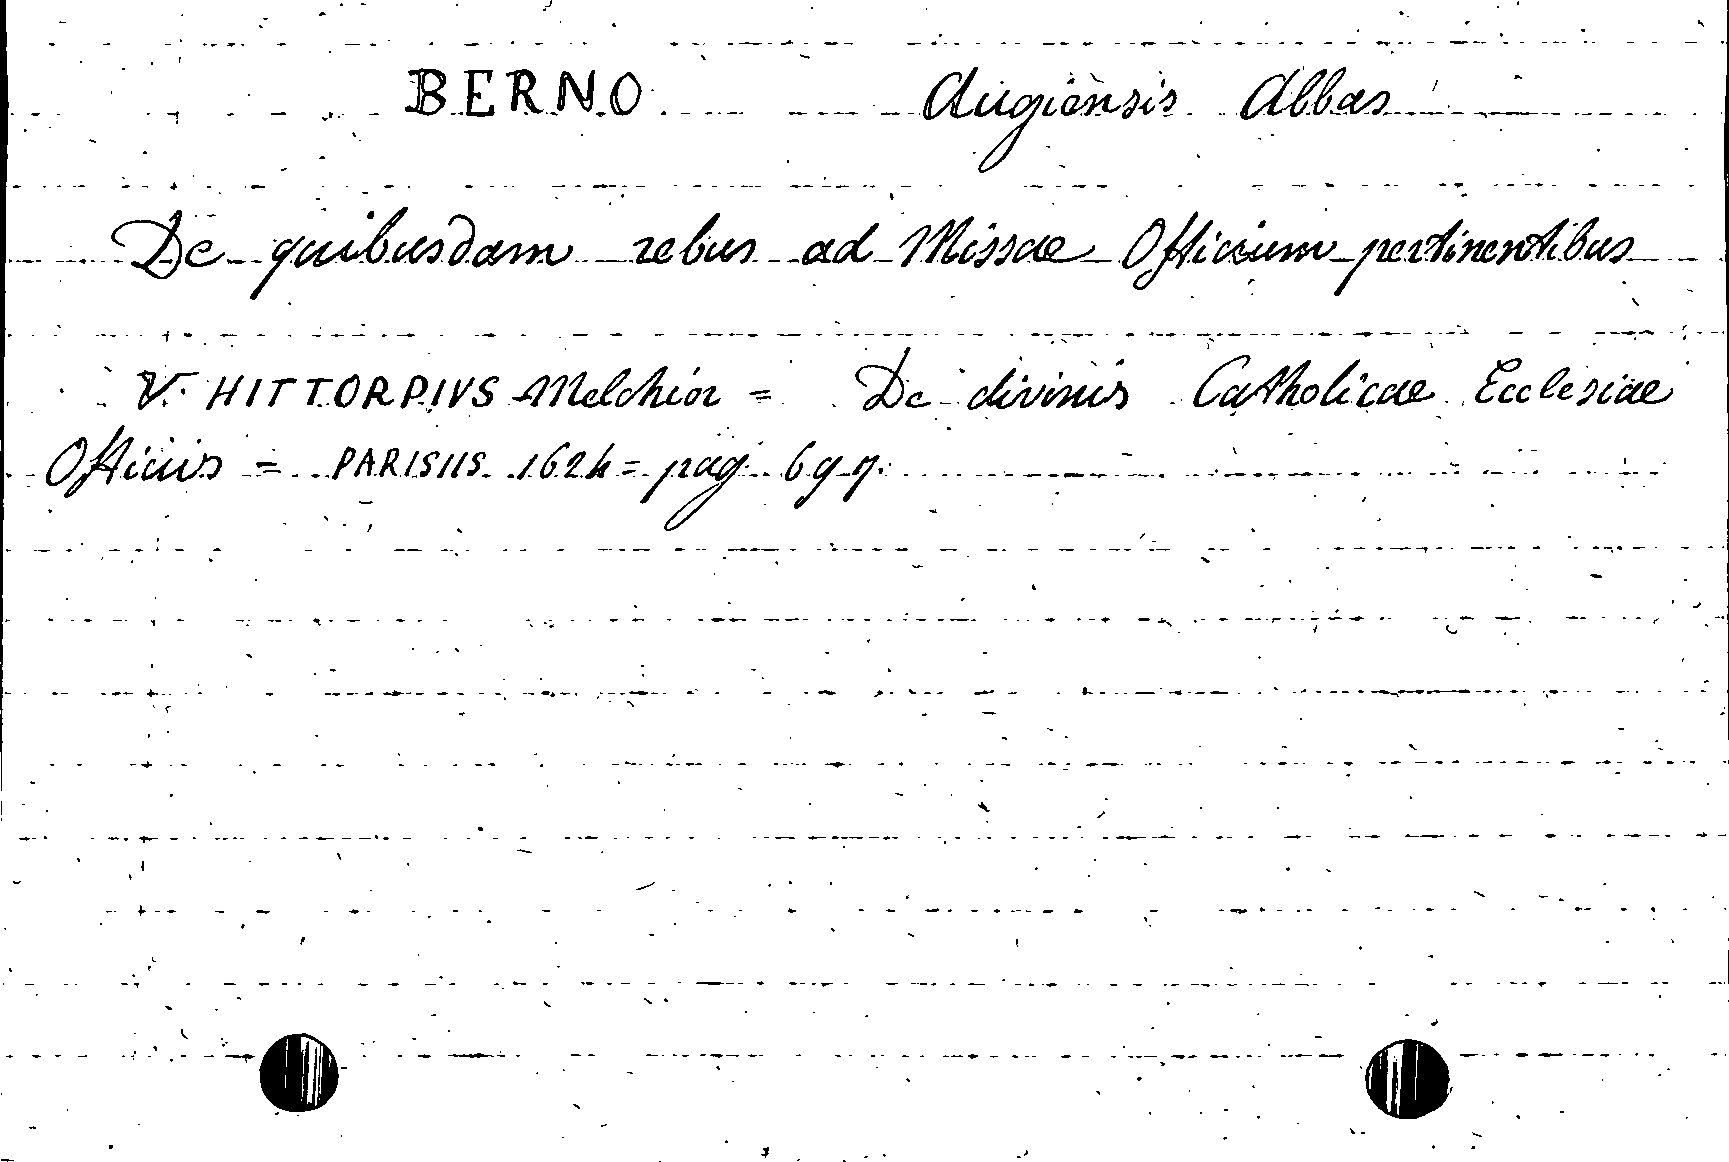 BERNO Augiensis Abbas
De quibusdam rebus ad Missae Officium pertinentibus
V. HITTORPIVS Melchior = De divinis Catholicae Ecclesiae
Officiis = PARISIIS 1624 = pag. 697.